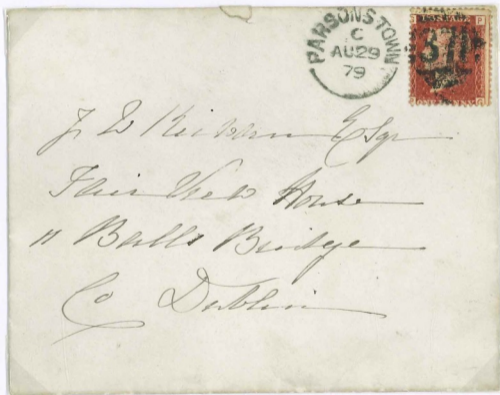 PARSONSTOWN
C
AU 29
79
371
J W Kirwan Esqr
Fair View House
11 Balls Bridge
Co Dublin